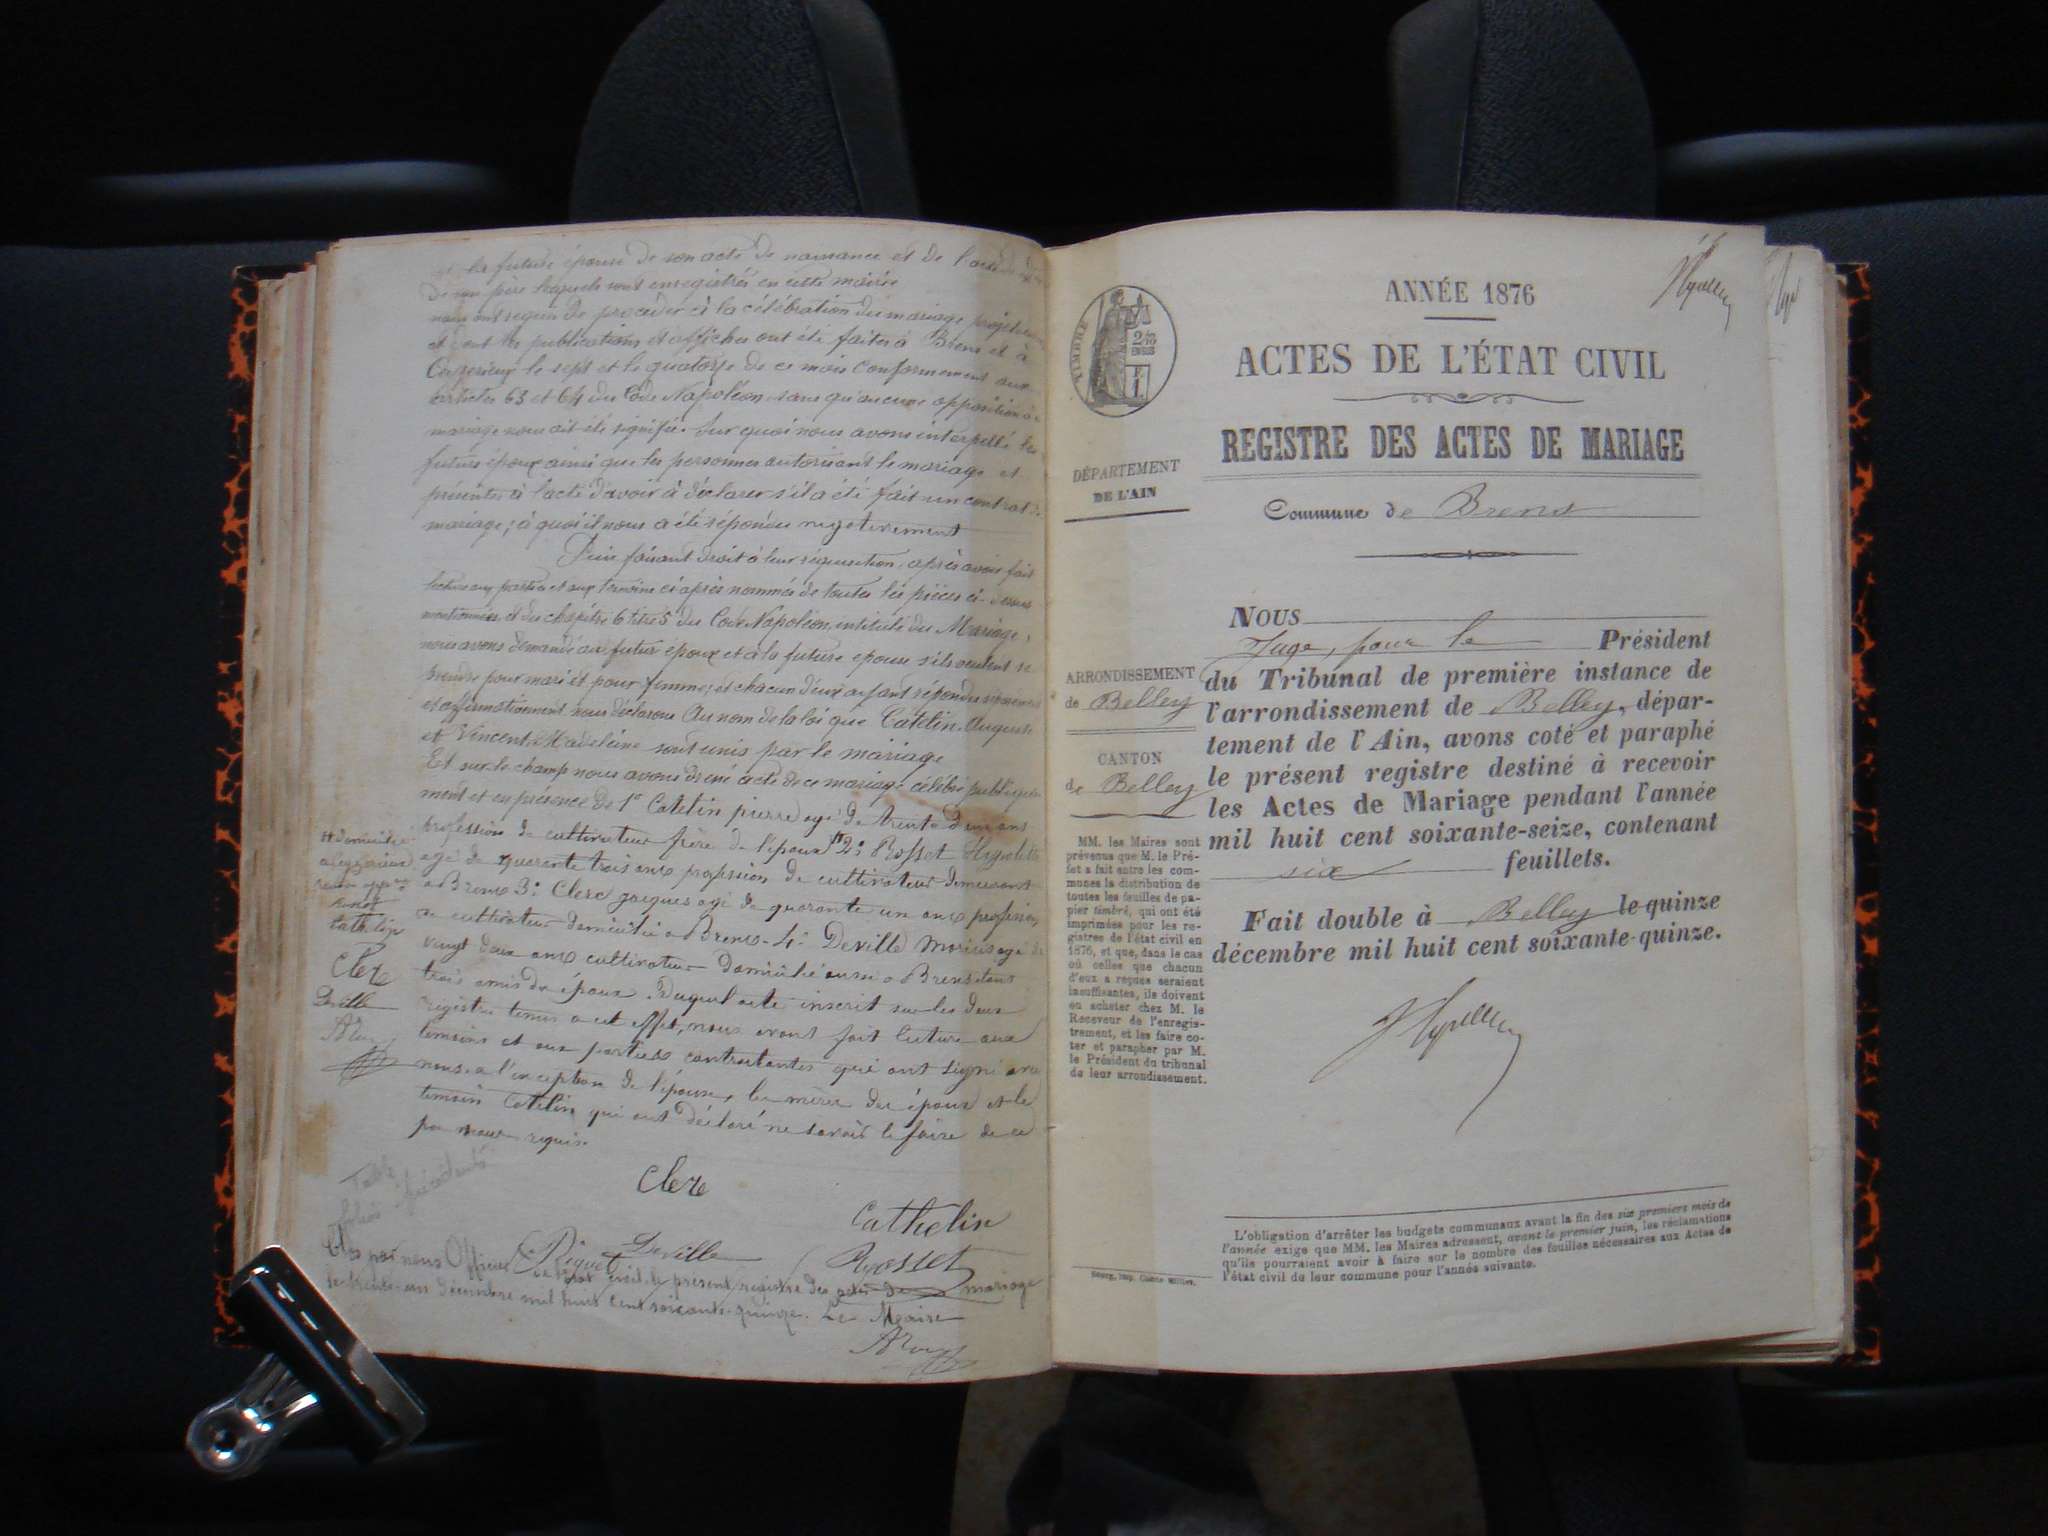 la future épouse de son acte de naissance et de l'acte de
de son père lesquels sont enregistrés en cette mairie
nous ont requis de procéder à la célébration du mariage projeté
et dont les publications et affiches ont été faites à Brens et à
le sept et le quatorze de ce mois conformement aux
articles 63 et 64 du Code Napoléon, sans qu'aucune opposition au
mariage nous ait été signifiée. Sur quoi nous avons interpellé les
futurs époux ainsi que les personnes autorisant le mariage et
présentes à l'acte d'avoir à déclarer s'il a été fait un contrat de
mariage; à quoi il nous a été répondu négativement
Puis faisant droit à leur réquisition, après avoir fait
lecture aux parties et aux témoins ci après nommés de toutes les pièces ci-dessus
mentionnées et du chapitre 6 titre 5 du Code Napoléon, intitulé du Mariage,
nous avons demandé au futur époux et à la future épouse s'ils veulent se
prendre pour mari et pour femme; et chacun d'eux ayant répondu séparément
et affirmativement nous déclarons Au nom de la loi que Catelin Auguste
et Vincent Madeleine sont unis par le mariage
Et sur le champ nous avons dressé acte de ce mariage célébré publique
ment et en présence de 1° Catelin pierre agé de trente d'un ans
profession de cultivateur frère de l'époux # 2° Rosset Hypolite
agé de quarente trois ans profession de cultivateur demeurant
a Brens 3° Clerc jacques agé de quarante un ans profession
de cultivateur domicilié a Brens - 4° Deville Marius agé de
vingt deux ans cultivateur domicilié aussi a Brens tous
trois amis de époux. Duquel acte inscrit sur les deux
régistre tenus a cet effet, nous avons fait lecture aux
temoins et aux parties contractantes qui ont signé avec
nous a l'exception de l'épouse, les mères des époux et le
temoin Catelin qui ont déclaré ne savoir le faire de ce
par nous requis.
# domicilié
Cathelin
Clerc
Deville
Clerc
Cathelin
Deville
Rosset
Clos par nous Officier de l'état civil le présent registre des actes de mariage
le trente-un décembre mil huit cent soixante-quinze. Le Maire
ANNÉE 1876
ACTES DE L'ÉTAT CIVIL
REGISTRE DES ACTES DE MARIAGE
Commune de Brens
TIMBRE
DÉPARTEMENT
DE L'AIN
ARRONDISSEMENT
de Belley
CANTON
de Belley
MM. les Maires sont
prévenus que M. le Pré-
fet a fait entre les com-
munes la distribution de
toutes les feuilles de pa-
pier timbré, qui ont été
imprimées pour les re-
gistres de l'état civil en
1876, et que, dans le cas
où celles que chacun
d'eux a reçues seraient
insuffisantes, ils doivent
en acheter chez M. le
Receveur de l'enregis-
trement, et les faire co-
ter et parapher par M.
le Président du tribunal
de leur arrondissement.
NOUS
Juge, pour le Président
du Tribunal de première instance de
l'arrondissement de Belley, dépar-
tement de l'Ain, avons coté et paraphé
le présent registre destiné à recevoir
les Actes de Mariage pendant l'année
mil huit cent soixante-seize, contenant
six feuillets.
Fait double à Belley le quinze
décembre mil huit cent soixante-quinze.
L'obligation d'arrêter les budgets communaux avant la fin des six premiers mois de
l'année exige que MM. les Maires adressent, avant le premier juin, les réclamations
qu'ils pourraient avoir à faire sur le nombre des feuilles nécessaires aux Actes de
l'état civil de leur commune pour l'année suivante.